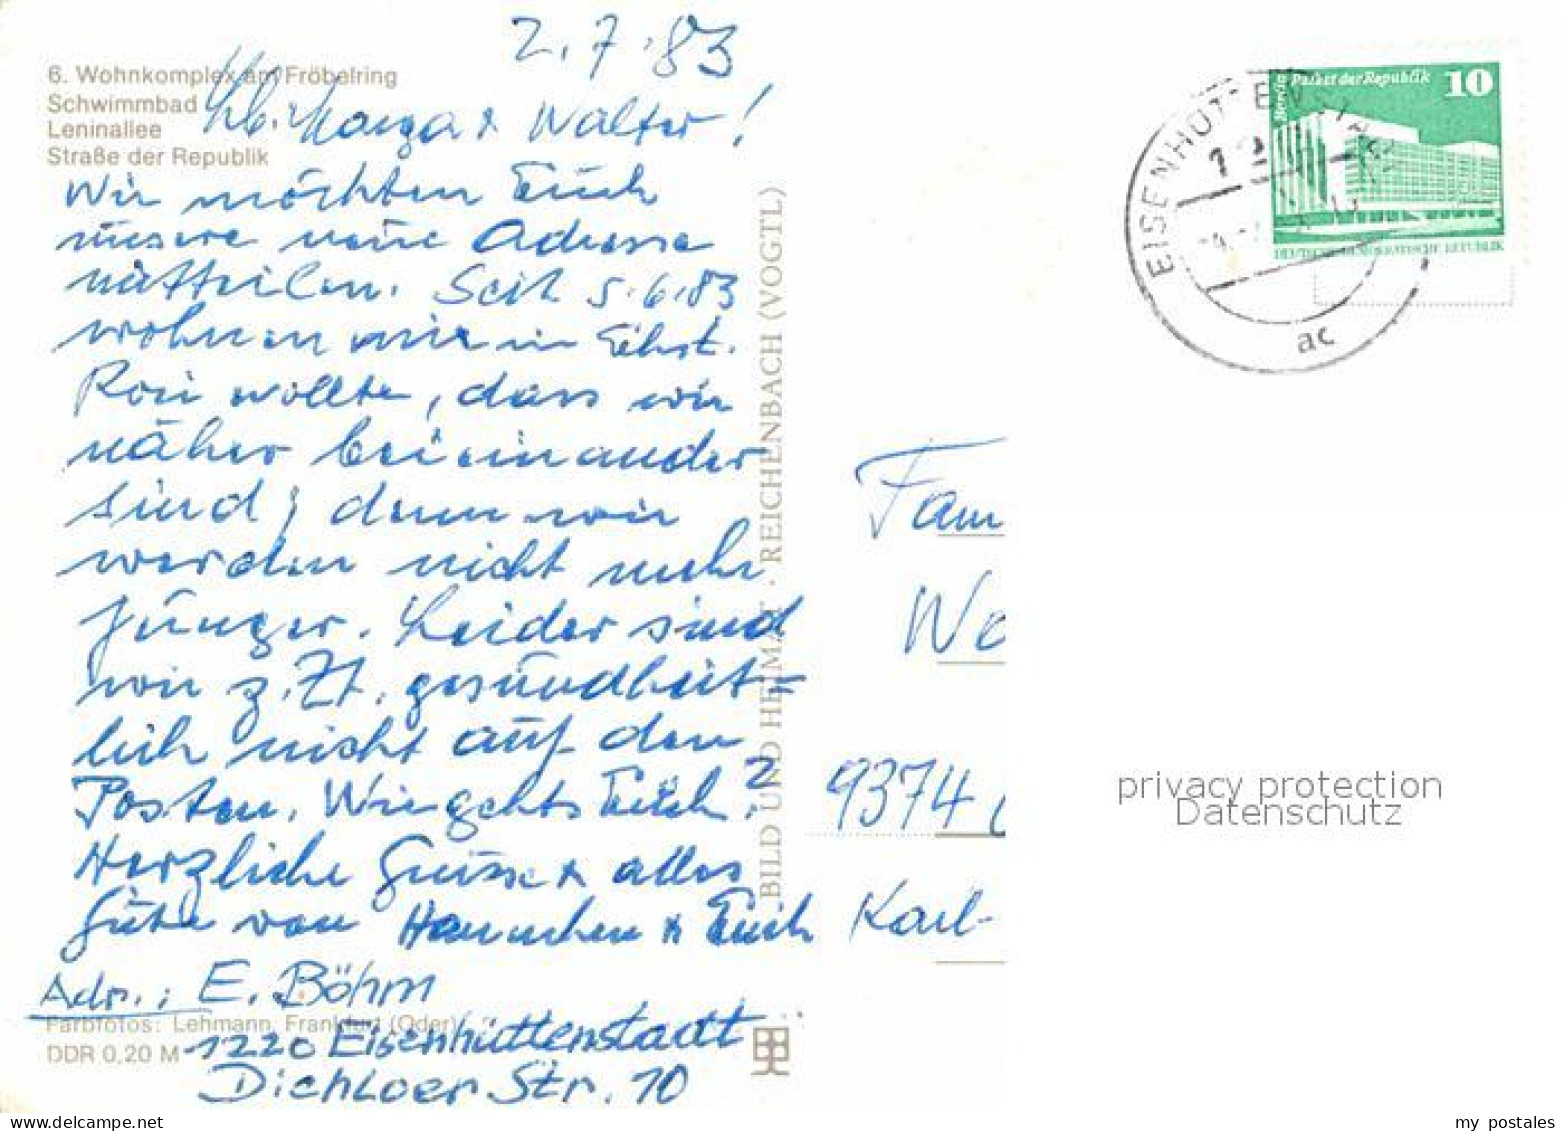 2.7.83
6. Wohnkomplex am Fröbelring
Schwimmbad
Leninallee
Straße der Republik
Lb. Marga & Walter!
Wir möchten Euch
unsere neue Adresse
mitteilen. Seit 5.6.83
wohnen wir in Ehst.
Rosi wollte, dass wir
näher beieinander
sind, denn wir
werden nicht mehr
jünger. Leider sind
wir z. Zt. gesundheit=
lich nicht auf dem
Posten. Wie gehts Euch?
Herzliche Grüsse & alles
Gute von Hannchen & Erich
Adr.: E. Böhm
1220 Eisenhüttenstadt
Farbfotos: Lehmann, Frankfurt (Oder)
DDR 0,20 M
Str. 10
BILD UND HEIMAT · REICHENBACH (VOGTL)
Berlin Palast der Republik 10
DEUTSCHE DEMOKRATISCHE REPUBLIK
EISENHÜTTENSTADT
12
ac
Fam
Wo
9374
Karl-
privacy protection
Datenschutz
my postales
www.delcampe.net